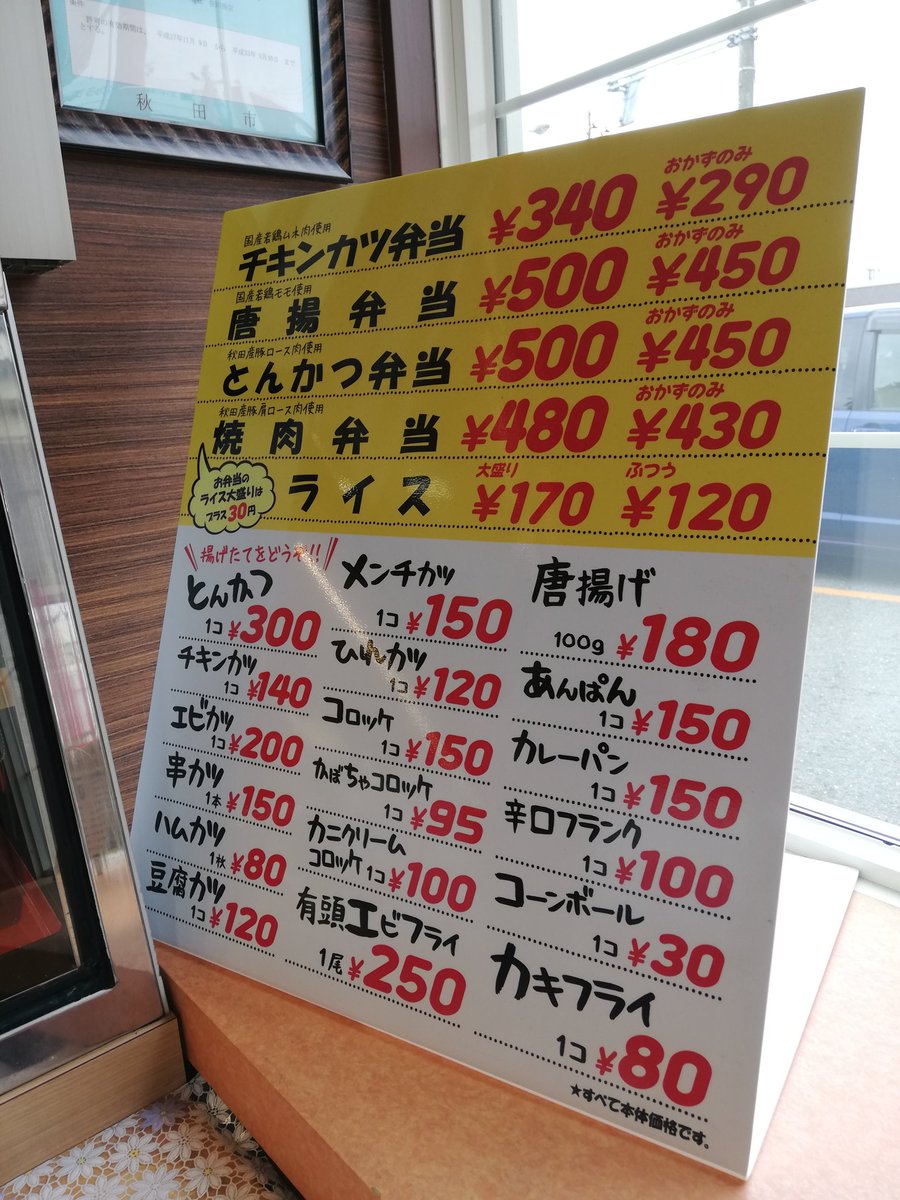 許可の有効期間は、平成27年11月 9日 から 平成33年 9月30日 まで
とする。
秋田市
国産若鶏ムネ肉使用
チキンカツ弁当 ¥340 おかずのみ ¥290
国産若鶏モモ使用
唐揚弁当 ¥500 おかずのみ ¥450
秋田産豚ロース肉使用
とんかつ弁当 ¥500 おかずのみ ¥450
秋田産豚肩ロース肉使用
焼肉弁当 ¥480 おかずのみ ¥430
お弁当の
ライス大盛りは
プラス30円
ライス 大盛り ¥170 ふつう ¥120
揚げたてをどうぞ!!
とんかつ
1コ ¥300
チキンカツ
1コ ¥140
エビカツ
1コ ¥200
串カツ
1本 ¥150
ハムカツ
1枚 ¥80
豆腐カツ
1コ ¥120
メンチカツ
1コ ¥150
ひれカツ
1コ ¥120
コロッケ
1コ ¥150
かぼちゃコロッケ
1コ ¥95
カニクリーム
コロッケ 1コ ¥100
有頭エビフライ
1尾 ¥250
唐揚げ
100g ¥180
あんぱん
1コ ¥150
カレーパン
1コ ¥150
辛口フランク
1コ ¥100
コーンボール
1コ ¥30
カキフライ
1コ ¥80
★すべて本体価格です。